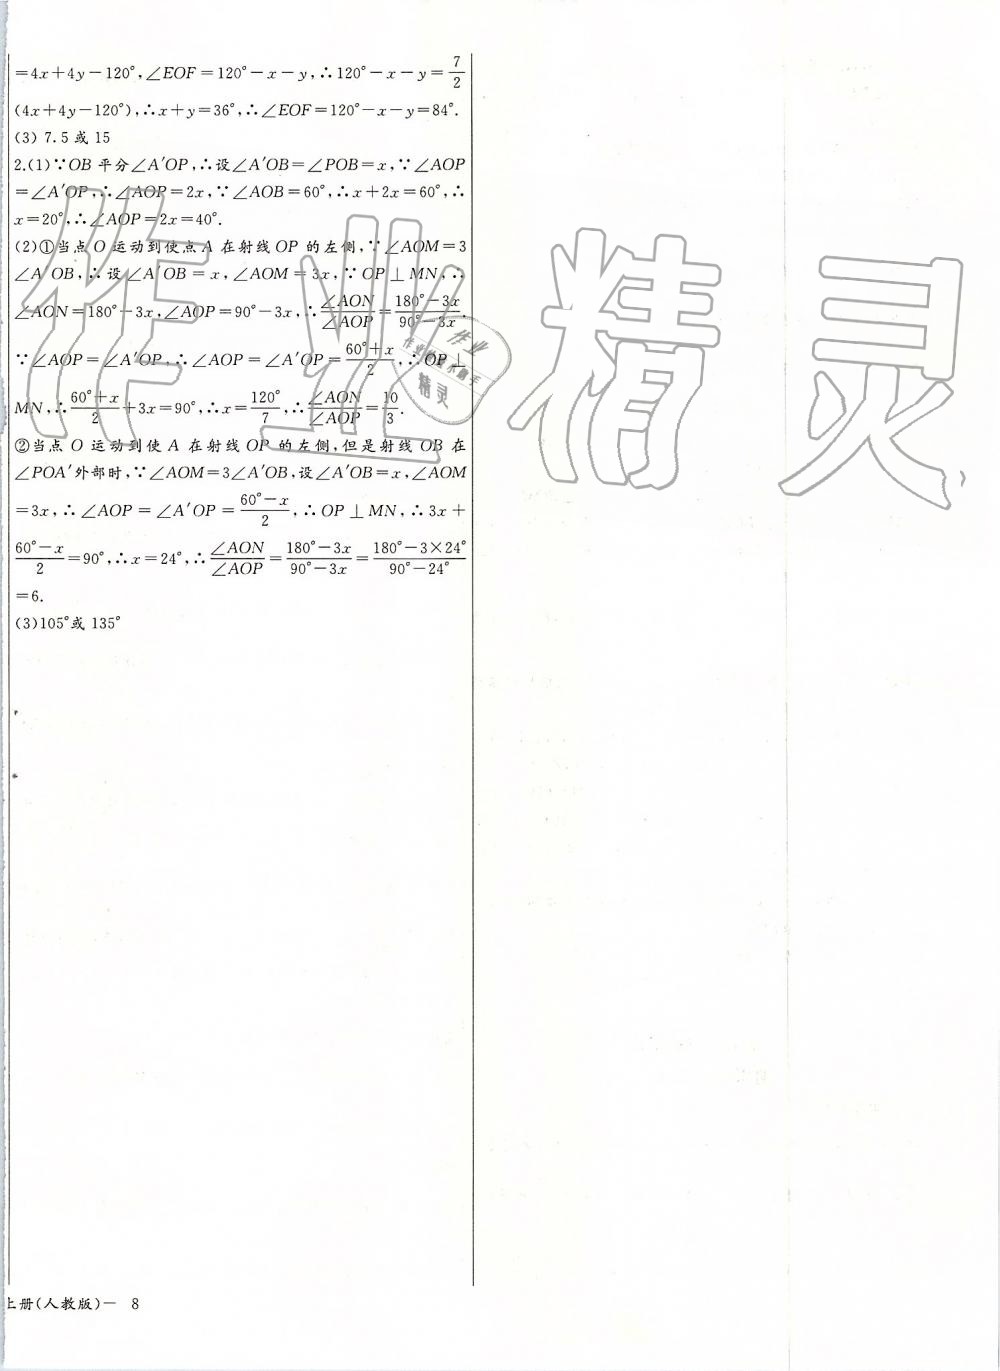 =4x+4y-120°,∠EOF=120°-x-y,∴120°-x-y=7/2
(4x+4y-120°),∴x+y=36°,∴∠EOF=120°-x-y=84°.
(3) 7.5或15
2.(1)∵OB平分∠A′OP,∴设∠A′OB=∠POB=x,∵∠AOP
=∠A′OP,∴∠AOP=2x,∵∠AOB=60°,∴x+2x=60°,∴
x=20°,∴∠AOP=2x=40°.
(2)①当点O运动到使点A在射线OP的左侧,∵∠AOM=3
∠A′OB,∴设∠A′OB=x,∠AOM=3x,∵OP⊥MN,∴
∠AON=180°-3x,∠AOP=90°-3x,∴∠AON/∠AOP=(180°-3x)/(90°-3x).
∵∠AOP=∠A′OP,∴∠AOP=∠A′OP=(60°+x)/2,∴OP⊥
MN,∴(60°+x)/2+3x=90°,∴x=120°/7,∴∠AON/∠AOP=10/3.
②当点O运动到使A在射线OP的左侧,但是射线OB在
∠POA′外部时,∵∠AOM=3∠A′OB,设∠A′OB=x,∠AOM
=3x,∴∠AOP=∠A′OP=(60°-x)/2,∴OP⊥MN,∴3x+
(60°-x)/2=90°,∴x=24°,∴∠AON/∠AOP=(180°-3x)/(90°-3x)=(180°-3×24°)/(90°-24°)
=6.
(3)105°或135°
作业精灵
作业
精灵
上册(人教版)— 8